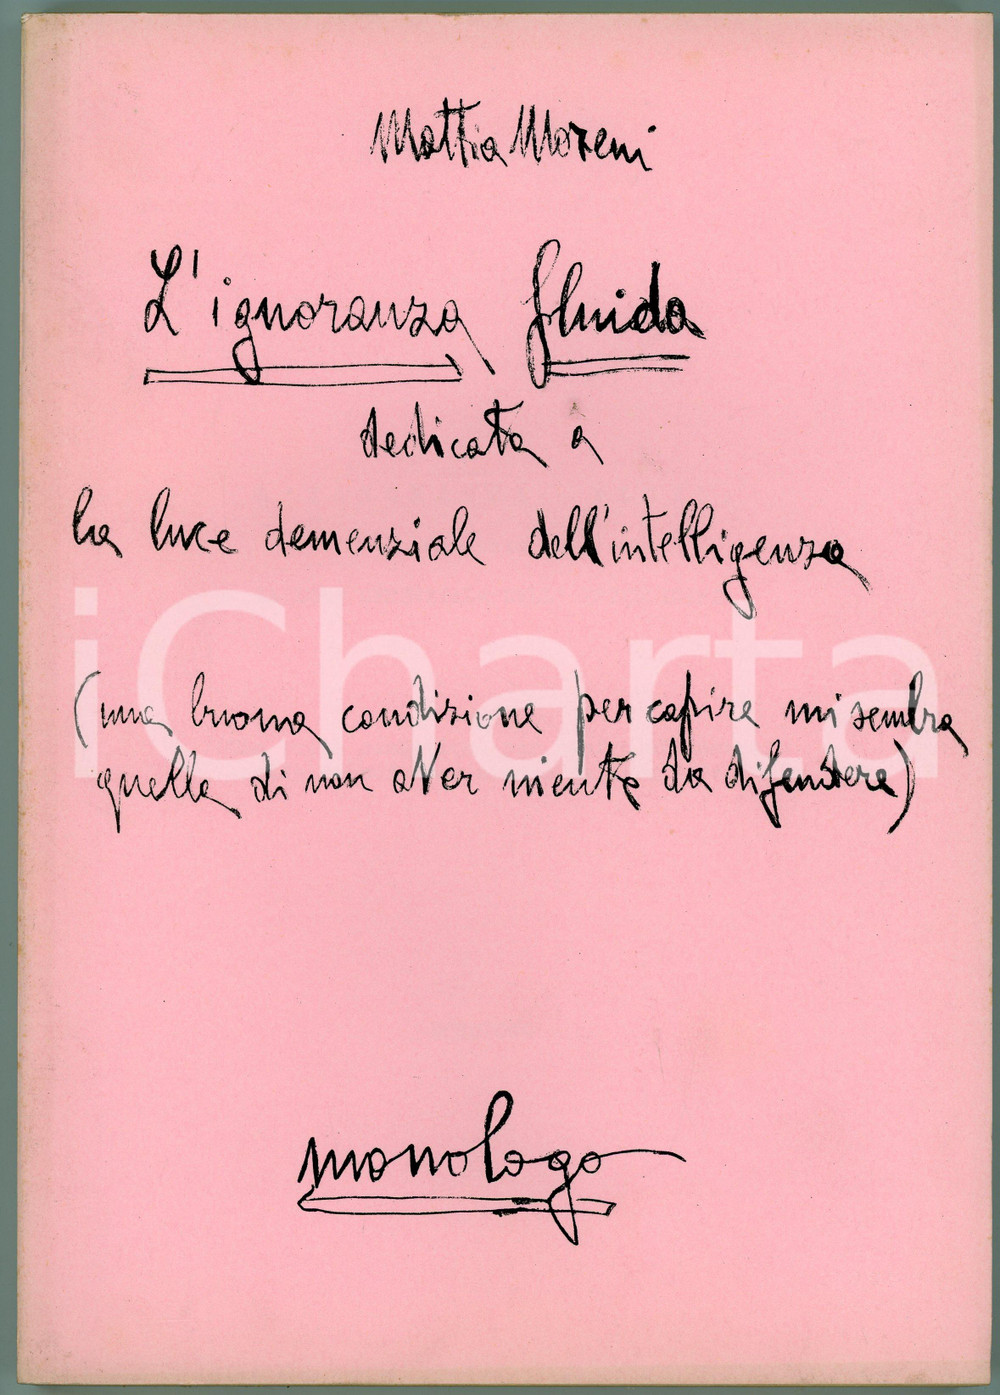 Mattia Moreni
L'ignoranza fluida
dedicata a
La luce demenziale dell'intelligenza
iCharta
(una buona condizione per capire mi sembra
quella di non aver niente da difendere)
monologo